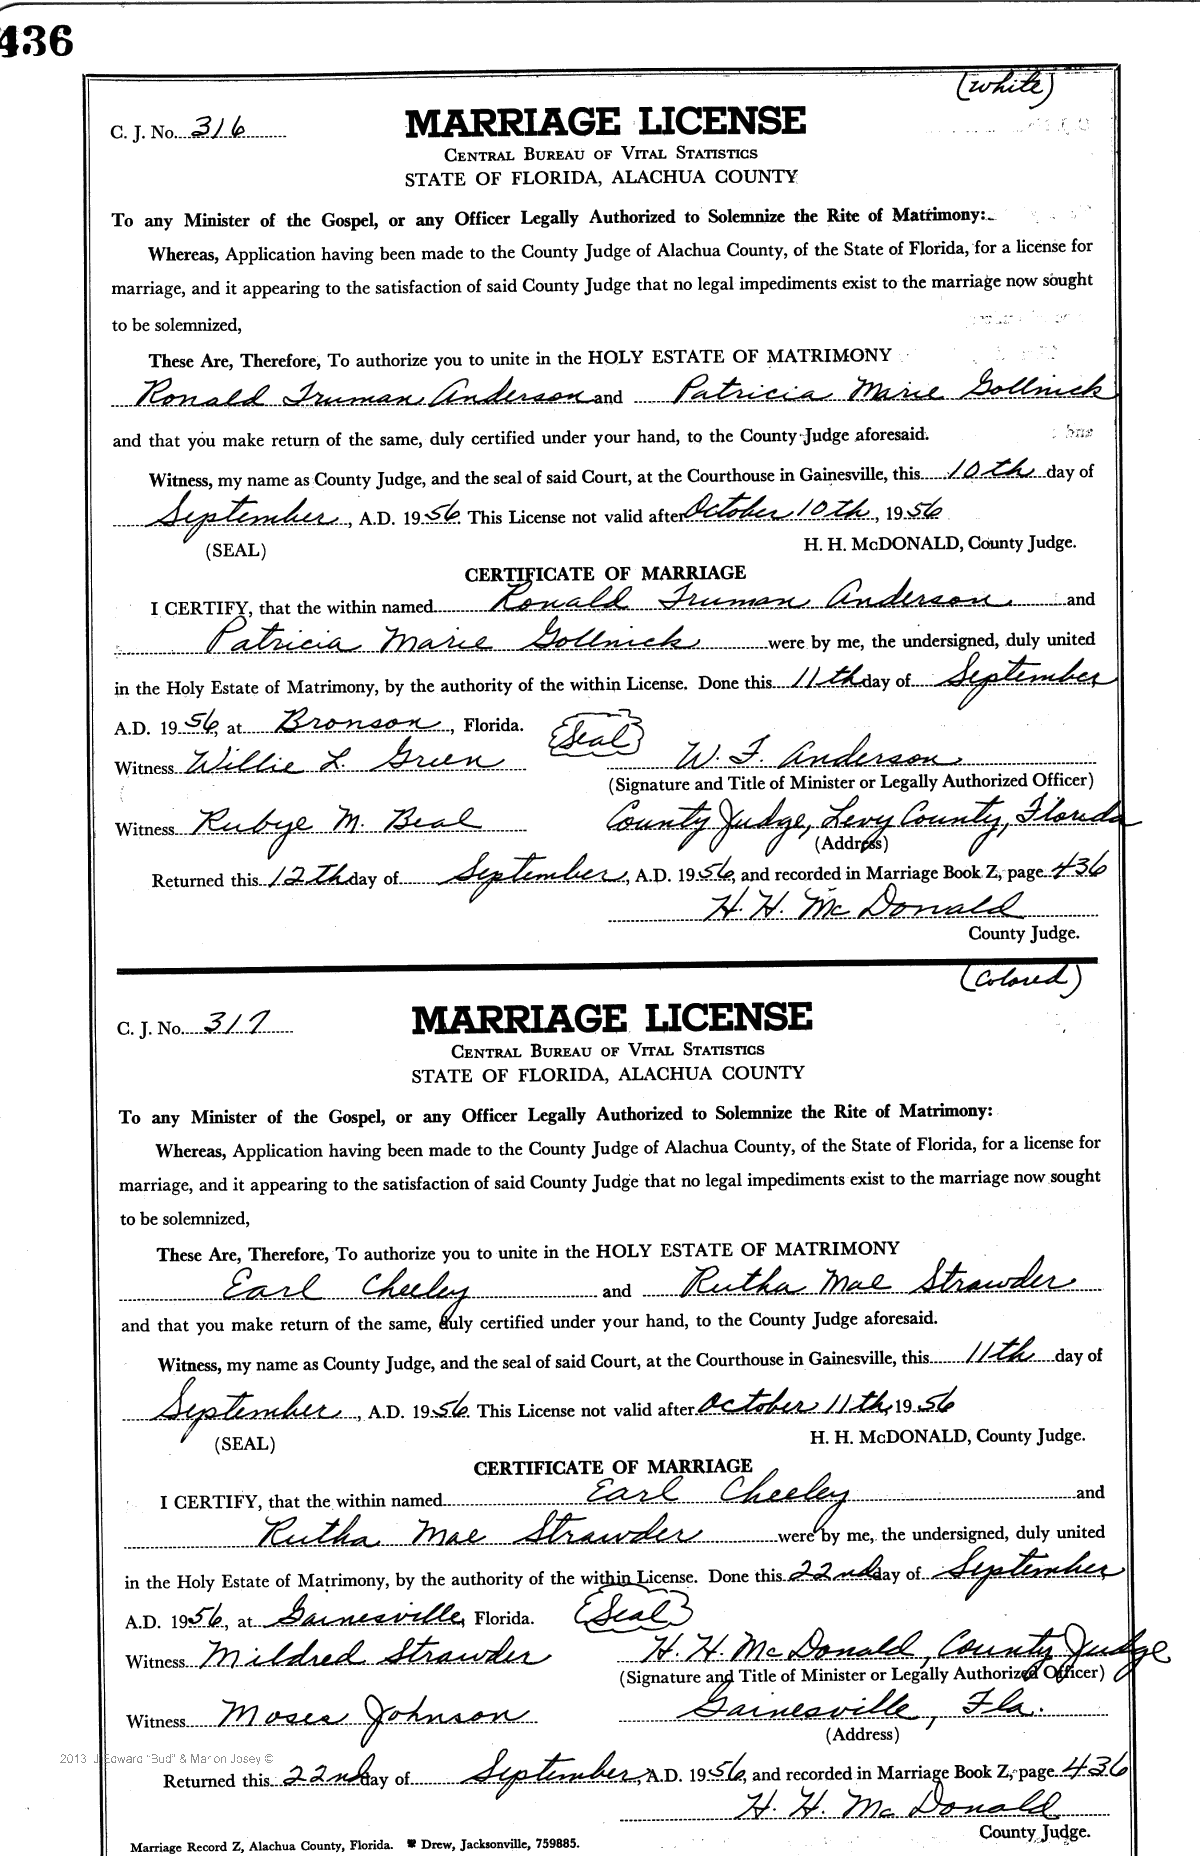 436
(White)
C. J. No. 316
MARRIAGE LICENSE
CENTRAL BUREAU OF VITAL STATISTICS
STATE OF FLORIDA, ALACHUA COUNTY
To any Minister of the Gospel, or any Officer Legally Authorized to Solemnize the Rite of Matrimony:
Whereas, Application having been made to the County Judge of Alachua County, of the State of Florida, for a license for
marriage, and it appearing to the satisfaction of said County Judge that no legal impediments exist to the marriage now sought
to be solemnized,
These Are, Therefore, To authorize you to unite in the HOLY ESTATE OF MATRIMONY
Ronald Truman Anderson and Patricia Marie Gollnick
and that you make return of the same, duly certified under your hand, to the County Judge aforesaid.
Witness, my name as County Judge, and the seal of said Court, at the Courthouse in Gainesville, this 10th day of
September, A.D. 1956. This License not valid after October 10th, 1956
(SEAL) H. H. McDONALD, County Judge.
CERTIFICATE OF MARRIAGE
I CERTIFY, that the within named Ronald Truman Anderson and
Patricia Marie Gollnick were by me, the undersigned, duly united
in the Holy Estate of Matrimony, by the authority of the within License. Done this 11th day of September,
A.D. 1956, at Bronson, Florida. (Seal)
Witness Willie L. Green W. F. Anderson
(Signature and Title of Minister or Legally Authorized Officer)
Witness Rubye M. Beal County Judge, Levy County, Florida
(Address)
Returned this 12th day of September, A.D. 1956, and recorded in Marriage Book Z, page 436
H. H. McDonald
County Judge.
(Colored)
C. J. No. 317
MARRIAGE LICENSE
CENTRAL BUREAU OF VITAL STATISTICS
STATE OF FLORIDA, ALACHUA COUNTY
To any Minister of the Gospel, or any Officer Legally Authorized to Solemnize the Rite of Matrimony:
Whereas, Application having been made to the County Judge of Alachua County, of the State of Florida, for a license for
marriage, and it appearing to the satisfaction of said County Judge that no legal impediments exist to the marriage now sought
to be solemnized,
These Are, Therefore, To authorize you to unite in the HOLY ESTATE OF MATRIMONY
Earl Cheeley and Rutha Mae Strawder
and that you make return of the same, duly certified under your hand, to the County Judge aforesaid.
Witness, my name as County Judge, and the seal of said Court, at the Courthouse in Gainesville, this 11th day of
September, A.D. 1956. This License not valid after October 11th, 1956
(SEAL) H. H. McDONALD, County Judge.
CERTIFICATE OF MARRIAGE
I CERTIFY, that the within named Earl Cheeley and
Rutha Mae Strawder were by me, the undersigned, duly united
in the Holy Estate of Matrimony, by the authority of the within License. Done this 22nd day of September,
A.D. 1956, at Gainesville, Florida. (Seal)
Witness Mildred Strawder H. H. McDonald, County Judge
(Signature and Title of Minister or Legally Authorized Officer)
Witness Moses Johnson Gainesville, Fla.
(Address)
2013 J Edward "Bud" & Marion Josey ©
Returned this 22nd day of September, A.D. 1956, and recorded in Marriage Book Z, page 436
H. H. McDonald
County Judge.
Marriage Record Z, Alachua County, Florida. Drew, Jacksonville, 759885.